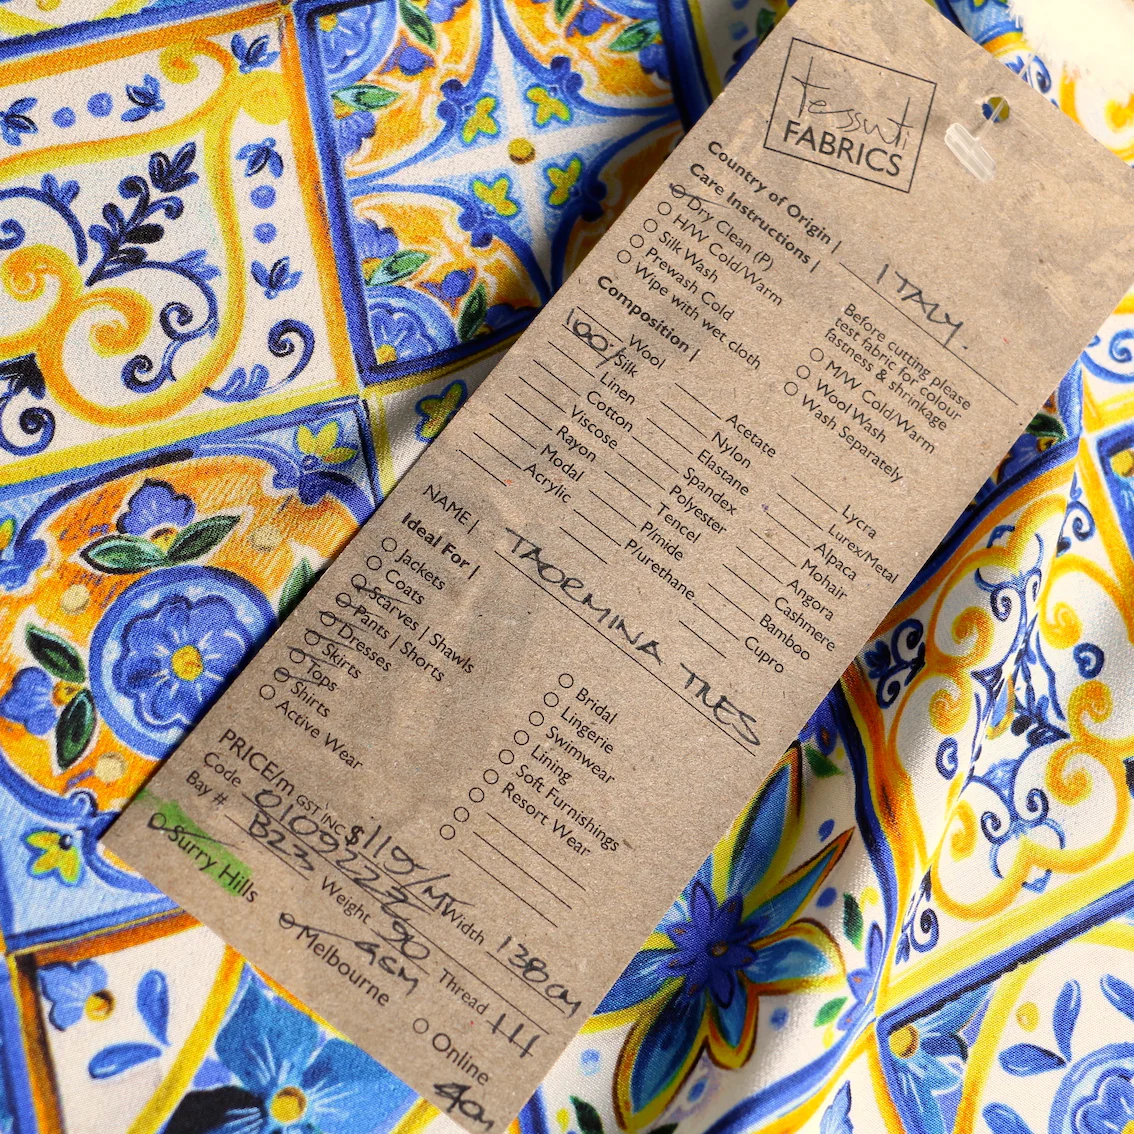 tessuti
FABRICS
Country of Origin | ITALY.
Care Instructions |
Dry Clean (P)
H/W Cold/Warm
Silk Wash
Prewash Cold
Wipe with wet cloth
Before cutting please
test fabric for colour
fastness & shrinkage
M/W Cold/Warm
Wool Wash
Wash Separately
Composition |
Wool
100% Silk
Linen
Cotton
Viscose
Rayon
Modal
Acrylic
Acetate
Nylon
Elastane
Spandex
Polyester
Tencel
P/mide
P/urethane
Lycra
Lurex/Metal
Alpaca
Mohair
Angora
Cashmere
Bamboo
Cupro
NAME | TAORMINA TILES
Ideal For |
Jackets
Coats
Scarves | Shawls
Pants | Shorts
Dresses
Skirts
Tops
Shirts
Active Wear
Bridal
Lingerie
Swimwear
Lining
Soft Furnishings
Resort Wear
PRICE/m GST INC $119/M Width 138cm
Code Weight 90 GSM Thread
Bay # B23
Surry Hills
Melbourne
Online